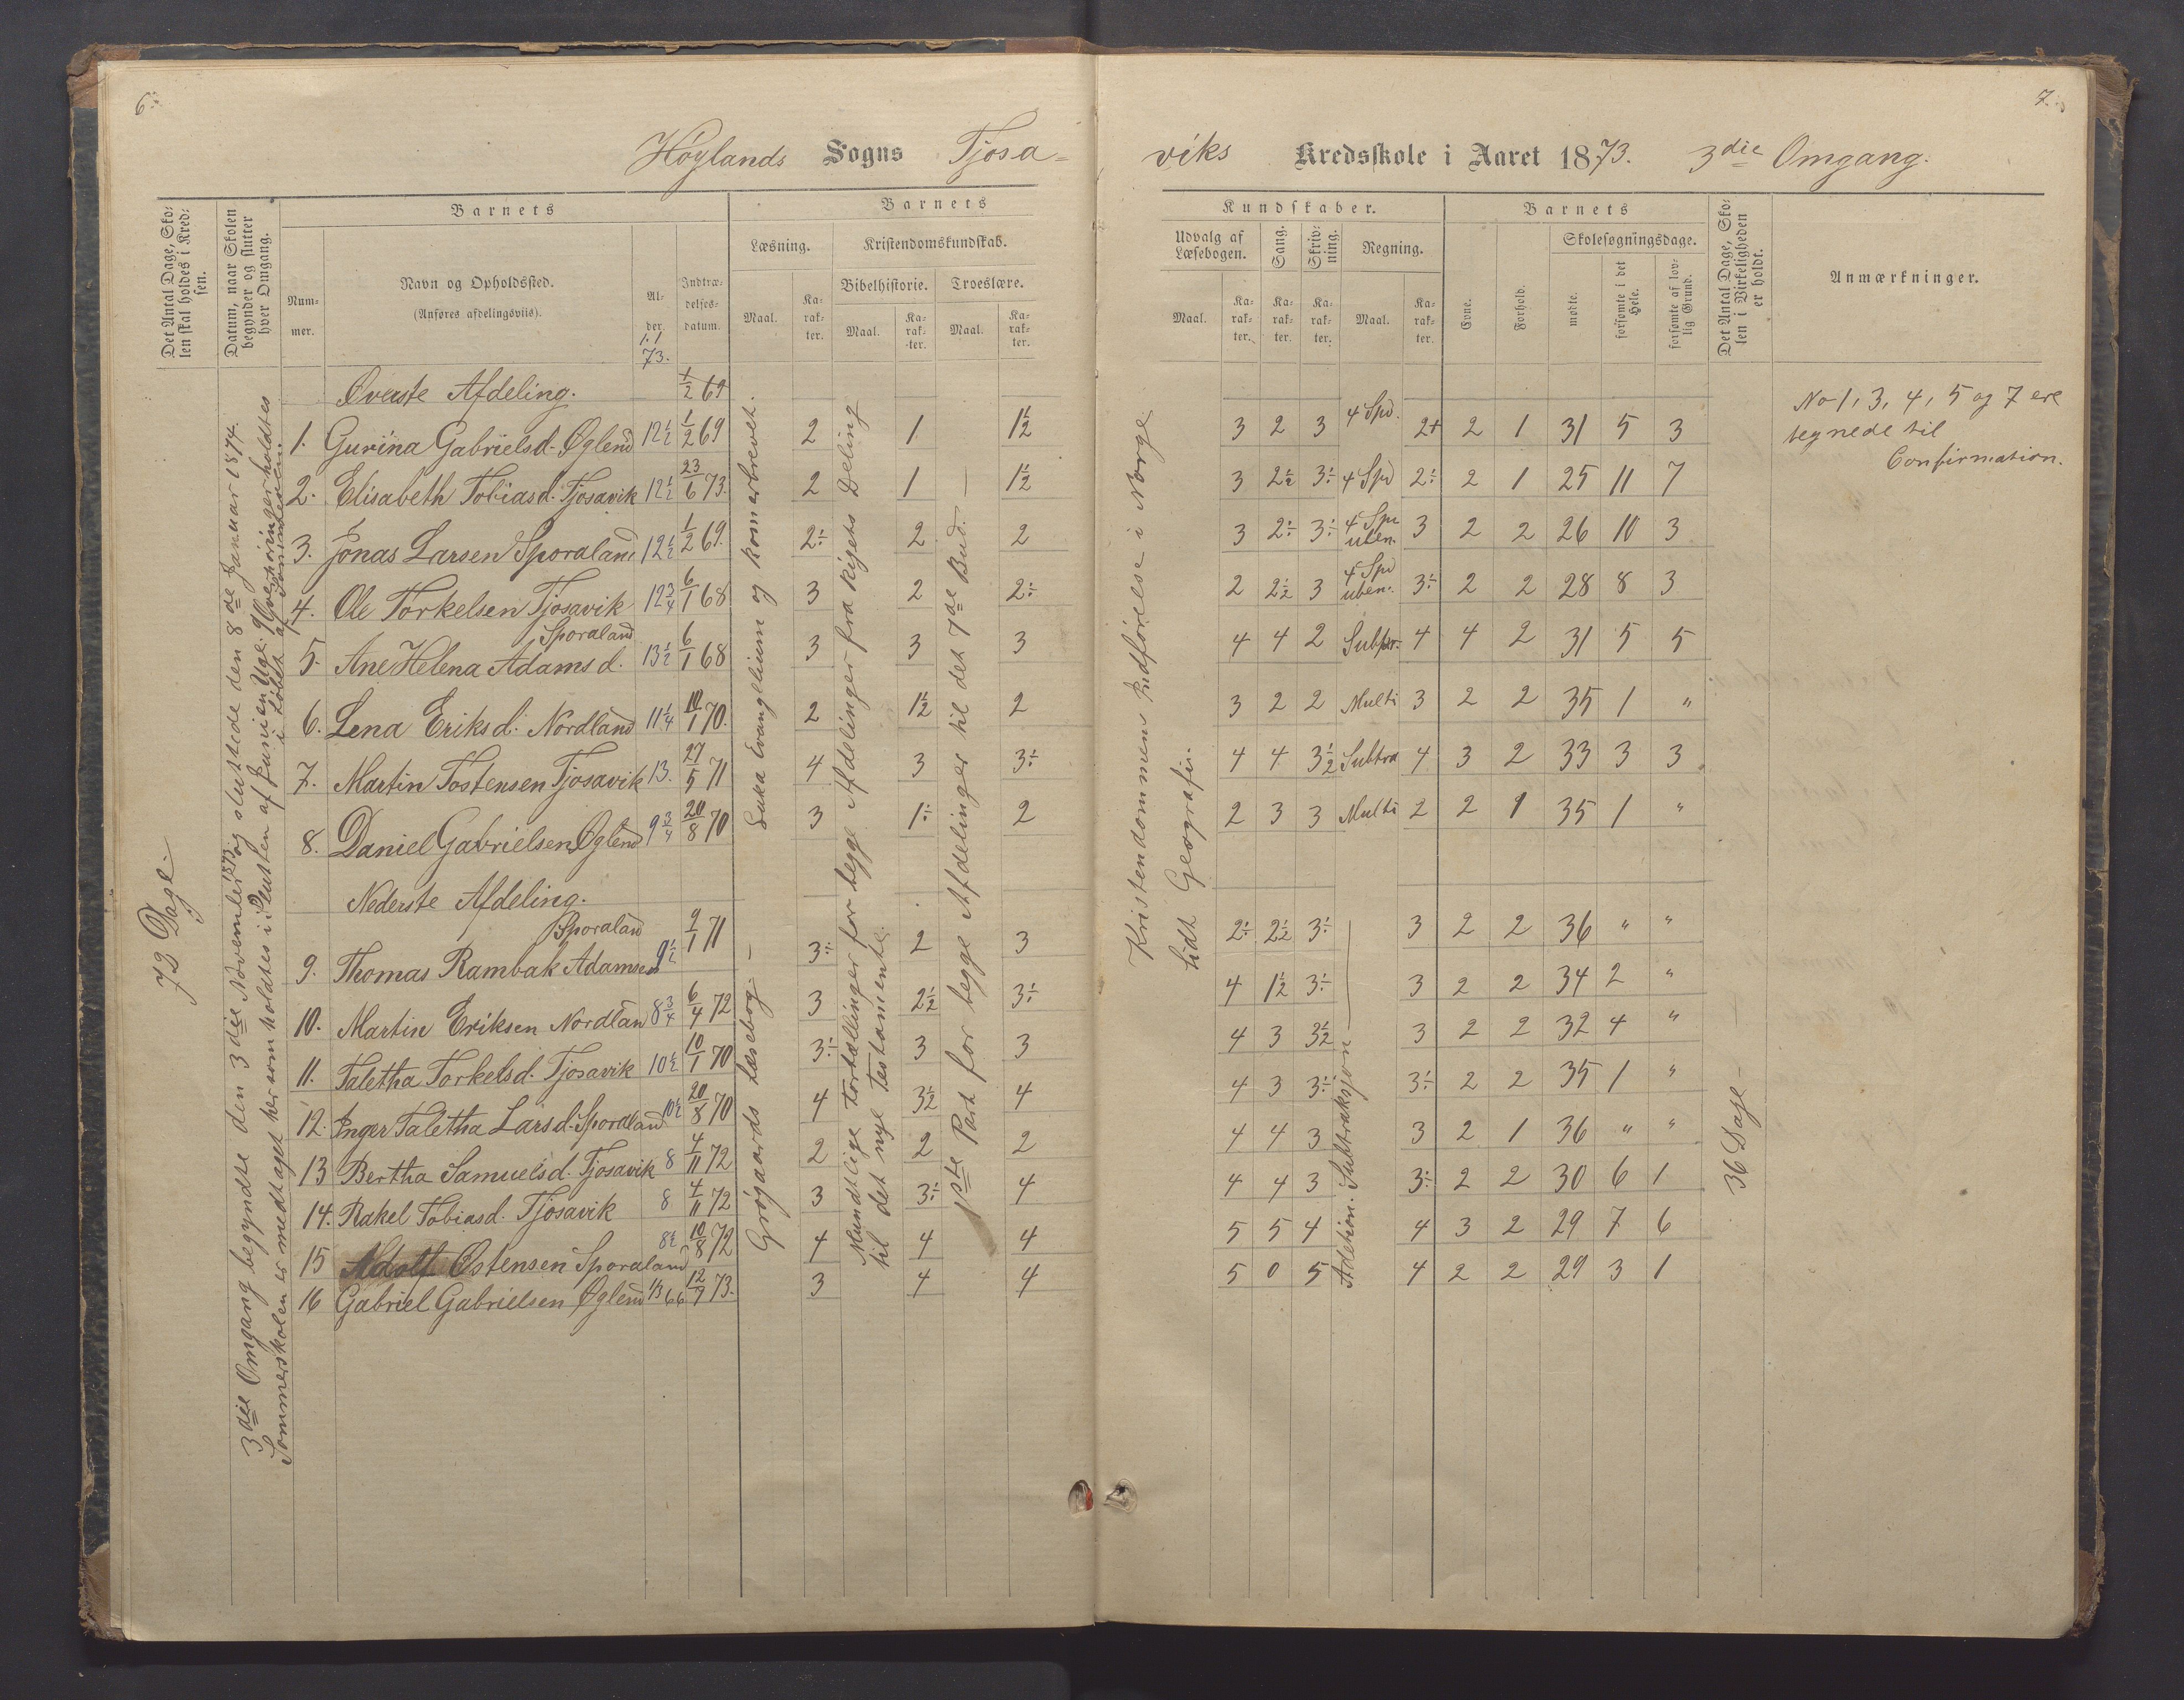 6.
Höylands Sogns Tjosa=
Det Antal Dage, Sko-
len skal holdes i Kred-
sen.
Datum, naar Skolen
begynder og slutter
hver Omgang.
Barnets
Num-
mer.
Navn og Opholdssted.
(Anføres afdelingsviis).
Al-
der.
1/1
73.
Indtræ-
delses-
datum.
Barnets
Læsning.
Kristendomskundskab.
Maal.
Ka-
rak-
ter.
Bibelhistorie.
Troeslære.
Maal.
Ka-
rak-
ter.
Maal.
Ka-
rak-
ter.
72 Dage.
3die Omgang begyndte den 3die November 1873 og sluttede den 8de Januar 1874.
Sommerskolen er medtaget her som holdtes i Slutten af Juni en Uge. Overhøringer holdtes
i Løbet af Sommeren.
Øverste Afdeling. 1/2 69
1. Gurina Gabrielsd. Øglend 12 1/2 1/2 69 2 1 1 1/2
2. Elisabeth Tobiasd. Tjosavik 12 1/2 23/6 73. 2 1 1 1/2
3. Jonas Larsen Sporaland 12 1/2 1/2 69. 2÷ 2 2
4. Ole Torkelsen Tjosavik 12 3/4 6/1 68 3 2 2÷
Sporaland
5. Ane Helena Adamsd. 13 1/2 6/1 68 3 3 3
6. Lena Eriksd. Nordland 11 1/4 10/1 70. 2 1 1/2 2
7. Martin Tostensen Tjosavik 13. 27/5 71 4 3 3÷
8. Daniel Gabrielsen Øglend 9 3/4 20/8 70 3 1÷ 2
Nederste Afdeling.
Sporaland
9. Thomas Rambak Adamsen 9 1/2 9/1 71 3÷ 2 3
10. Martin Eriksen Nordlan 8 3/4 6/4 72 3 2 1/2 3÷
11. Taletha Torkelsd. Tjosavik 10 1/2 10/1 70 3÷ 3 3
12. Inger Taletha Larsd. Sporaland 10 1/2 20/8 70 4 3 1/2 4
13 Bertha Samuelsd. Tjosavik 8 4/11 72 2 2 2
14. Rakel Tobiasd. Tjosavik 8 4/11 72 3 3÷ 4
15 Adolf Østensen Sporaland 8 1/2 10/8 72 4 4 4
16 Gabriel Gabrielsen Øglend 1/3 66 12/9 73. 3 4 4
Luka Evangelium og Romerbrevet.
Grøgaards Læsebog.
Mundtlige Fortællinger for begge Afdelinger fra Rigets Deling
til det nye Testamente.
1ste Part for begge Afdelinger til det 7de Bud.
7.
viks Kredsskole i Aaret 1873. 3die Omgang.
Kundskaber.
Udvalg af
Læsebogen.
Sang.
Skriv-
ning.
Regning.
Maal.
Ka-
rak-
ter.
Ka-
rak-
ter.
Ka-
rak-
ter.
Maal.
Ka-
rak-
ter.
Barnets
Evne.
Forhold.
Skolesøgningsdage.
mødte.
forsømte i det
Hele.
forsømte af lov-
lig Grund.
Det Antal Dage, Sko-
len i Virkeligheden
er holdt.
Anmærkninger.
Kristendommens Indförelse i Norge.
Lidt Geografi.
3 2 3 4 Spd. 2+ 2 1 31 5 3
3 2 1/2 3÷ 4 Spd 2÷ 2 1 25 11 7
3 2÷ 3÷ 4 Spe uben. 3 2 2 26 10 3
2 2 1/2 3 4 Spd uben. 3÷ 2 2 28 8 3
4 4 2 Subtr. 4 4 2 31 5 5
3 2 2 Multi 3 2 2 35 1 "
4 4 3 1/2 Subtra 4 3 2 33 3 3
2 3 3 Multi 2 2 1 35 1 "
2÷ 2 1/2 3÷ 3 2 2 36 " "
4 1 1/2 3÷ 3 2 2 34 2 "
4 3 3 1/2 3 2 2 32 4 "
4 3 3÷ 3÷ 2 2 35 1 "
4 4 3 3 2 1 36 " "
4 4 3 3÷ 2 2 30 6 1
5 5 4 4 3 2 29 7 6
5 0 5 4 2 2 29 3 1
Adetion. Subtraksjon
36 Dage
No 1, 3, 4, 5 og 7 ere
tegnede til
Confirmation.